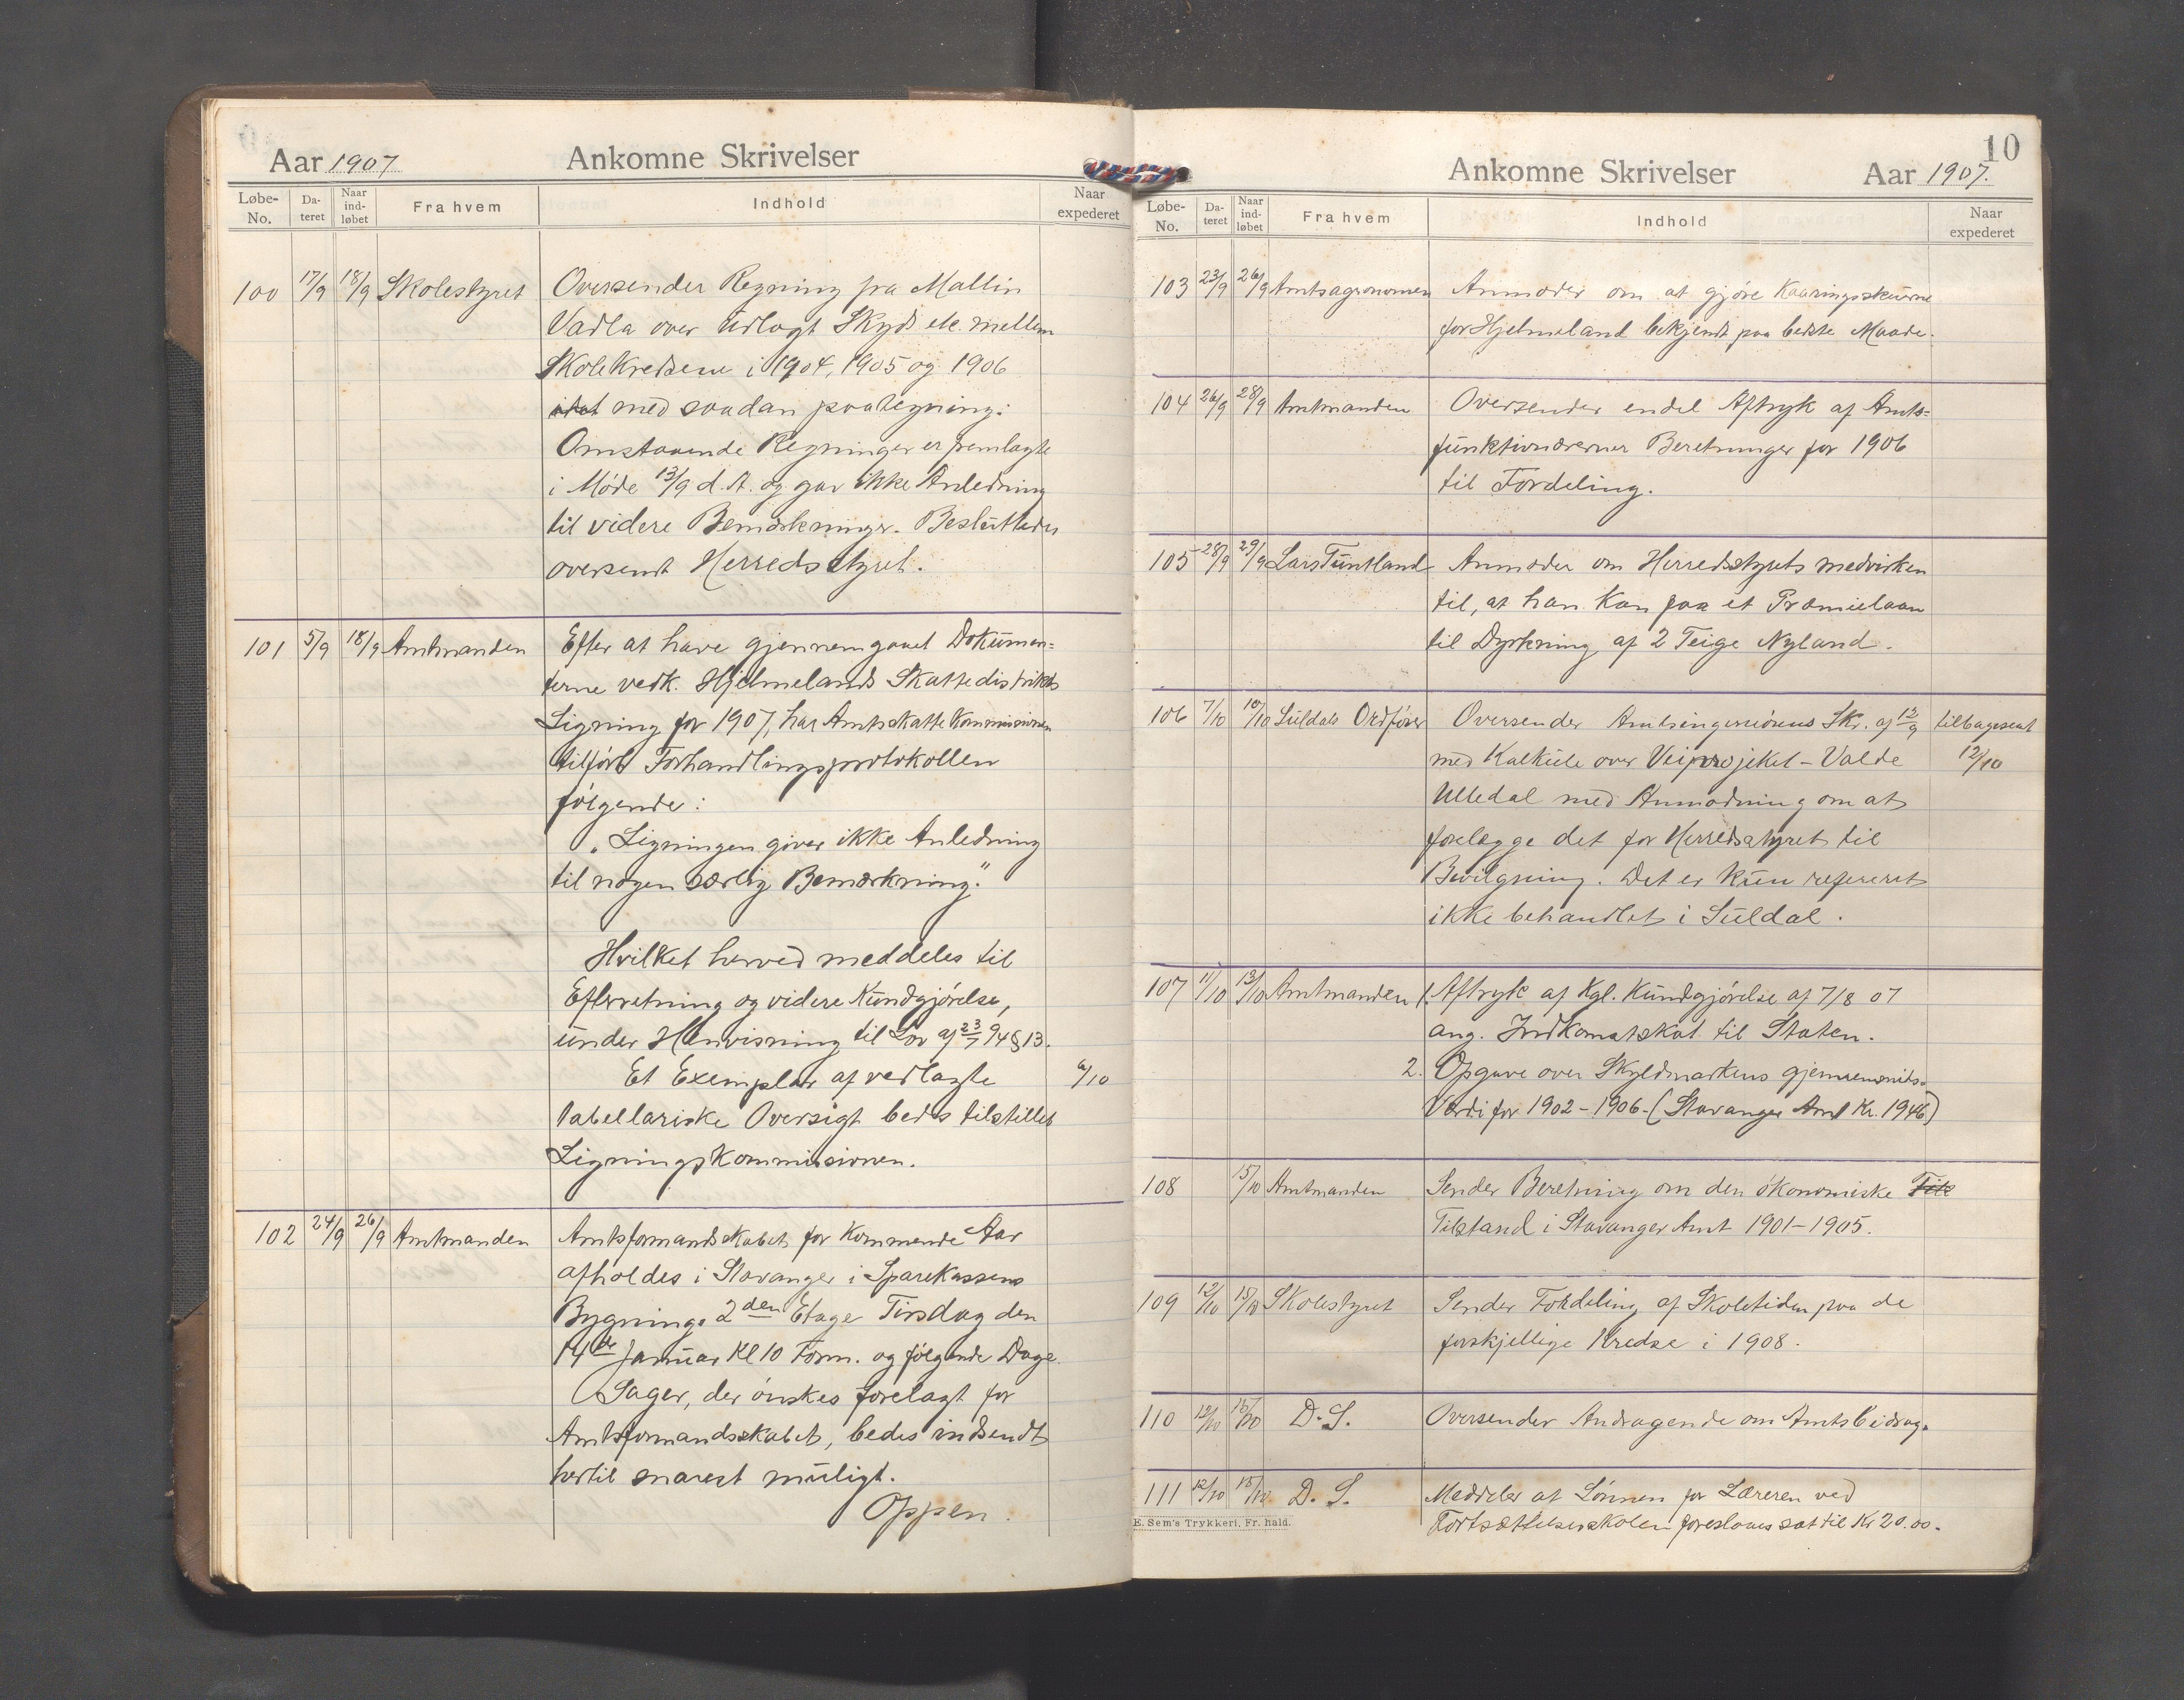 Aar 1907
Ankomne Skrivelser
Løbe-No.
Dateret
Naar ind-løbet
Fra hvem
Indhold
Naar expederet
100 17/9 18/9 Skolestyret Oversender Regning fra Mallin
Vadla over udlagt Skyds etc. mellem
Skolekredsene i 1904, 1905 og 1906
med saadan paategning:
Omstaaende Regninger er fremlagte
i Møde 13/9 d.A. og gav ikke Anledning
til videre Bemærkninger. Besluttedes
oversendt Herredsstyret.
101 5/9 18/9 Amtmanden Efter at have gjennemgaaet Dokumen-
terne vedk. Hjelmelands Skattedistrikts
Ligning for 1907, har Amtsskattekommissionen
tilført Forhandlingsprotokollen
følgende:
„Ligningen giver ikke Anledning
til nogen særlig Bemærkning."
Hvilket herved meddeles til
Efterretning og videre Kundgjørelse,
under Henvisning til Lov af 23/7 94 § 13.
Et Exemplar af vedlagte 4/10
tabellariske Oversigt bedes tilstillet
Ligningskommissionen.
102 24/9 26/9 Amtmanden Amtsformandskabet for kommende Aar
afholdes i Stavanger i Sparekassens
Bygnings 2den Etage Tirsdag den
14de Januar Kl 10 Form. og følgende Dage.
Sager, der ønskes forelagt for
Amtsformandsskabet, bedes indsendt
hertil snarest muligt.
Oppen.
10
Ankomne Skrivelser
Aar 1907.
Løbe-No.
Dateret
Naar ind-løbet
Fra hvem
Indhold
Naar expederet
103 23/9 26/9 Amtsagronomen Anmoder om at gjøre Kaaringsskuerne
for Hjelmeland bekjendt paa bedste Maade.
104 26/9 28/9 Amtmanden Oversender endel Aftryk af Amts-
funktionærernes Beretninger for 1906
til Fordeling.
105 28/9 29/9 Lars Tuntland Anmoder om Herredsstyrets medvirken
til, at han kan faa et Præmielaan
til Dyrkning af 2 Teige Nyland.
106 7/10 10/10 Suldals Ordfører Oversender Amtsingeniørens Skr. af 12/9 tilbagesent
med Kalkule over Veiprojektet - Valde 12/10
Ulledal med Anmodning om at
forelægge det for Herredsstyret til
Bevilgning. Det er kun refereret
ikke behandlet i Suldal.
107 11/10 13/10 Amtmanden 1. Aftryk af Kgl. Kundgjørelse af 7/8 07
ang. Indkomstskat til Staten.
2. Opgave over Skyldmarkens gjennemsnits-
Værdi for 1902-1906. (Stavanger Amt Kr. 1946)
108 15/10 Amtmanden Sender Beretning om den økonomiske Til
Tilstand i Stavanger Amt 1901-1905.
109 12/10 15/10 Skolestyret Sender Fordeling af Skoletiden paa de
forskjellige Kredse i 1908.
110 12/10 15/10 D.S. Oversender Andragende om Amtsbidrag.
111 12/10 15/10 D.S. Meddeler at Lønnen for Læreren ved
Fortsættelsesskolen foreslaaes sat til Kr 20.00.
E. Sem's Trykkeri, Fr.hald.